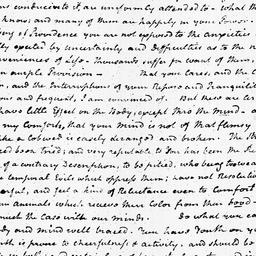 us conducive to it, are uniformly attended to - what th
know, and many of them are happily in your Power.
By of Providence you are not exposed to the anxieties
ally opened by uncertainty and Difficulties as to the
veniences of Life. Thousands suffer for want of them,
an ample Provision - That your Cares, and the
, and the Interruptions of your Repose and Tranquility
ous and frequent, I am convinced of. But these are
have little Effect on the Body, except thro the mind - a
my Comfort, that your mind is not of that flimsy
like a cobweb is easily deranged and broken - The
been Tried; and very reputable to You has been the
of a contrary Description, to be pitied, who being too weak
Temporal Evils which oppress them, have not Resolution
and feel a kind of Reluctance even to Comfort
animals which receive their Color from their
much the Case with our minds. Do what you can
dy and mind well braced. You have Youth on your
is prone to cheerfulness & activity, and should be